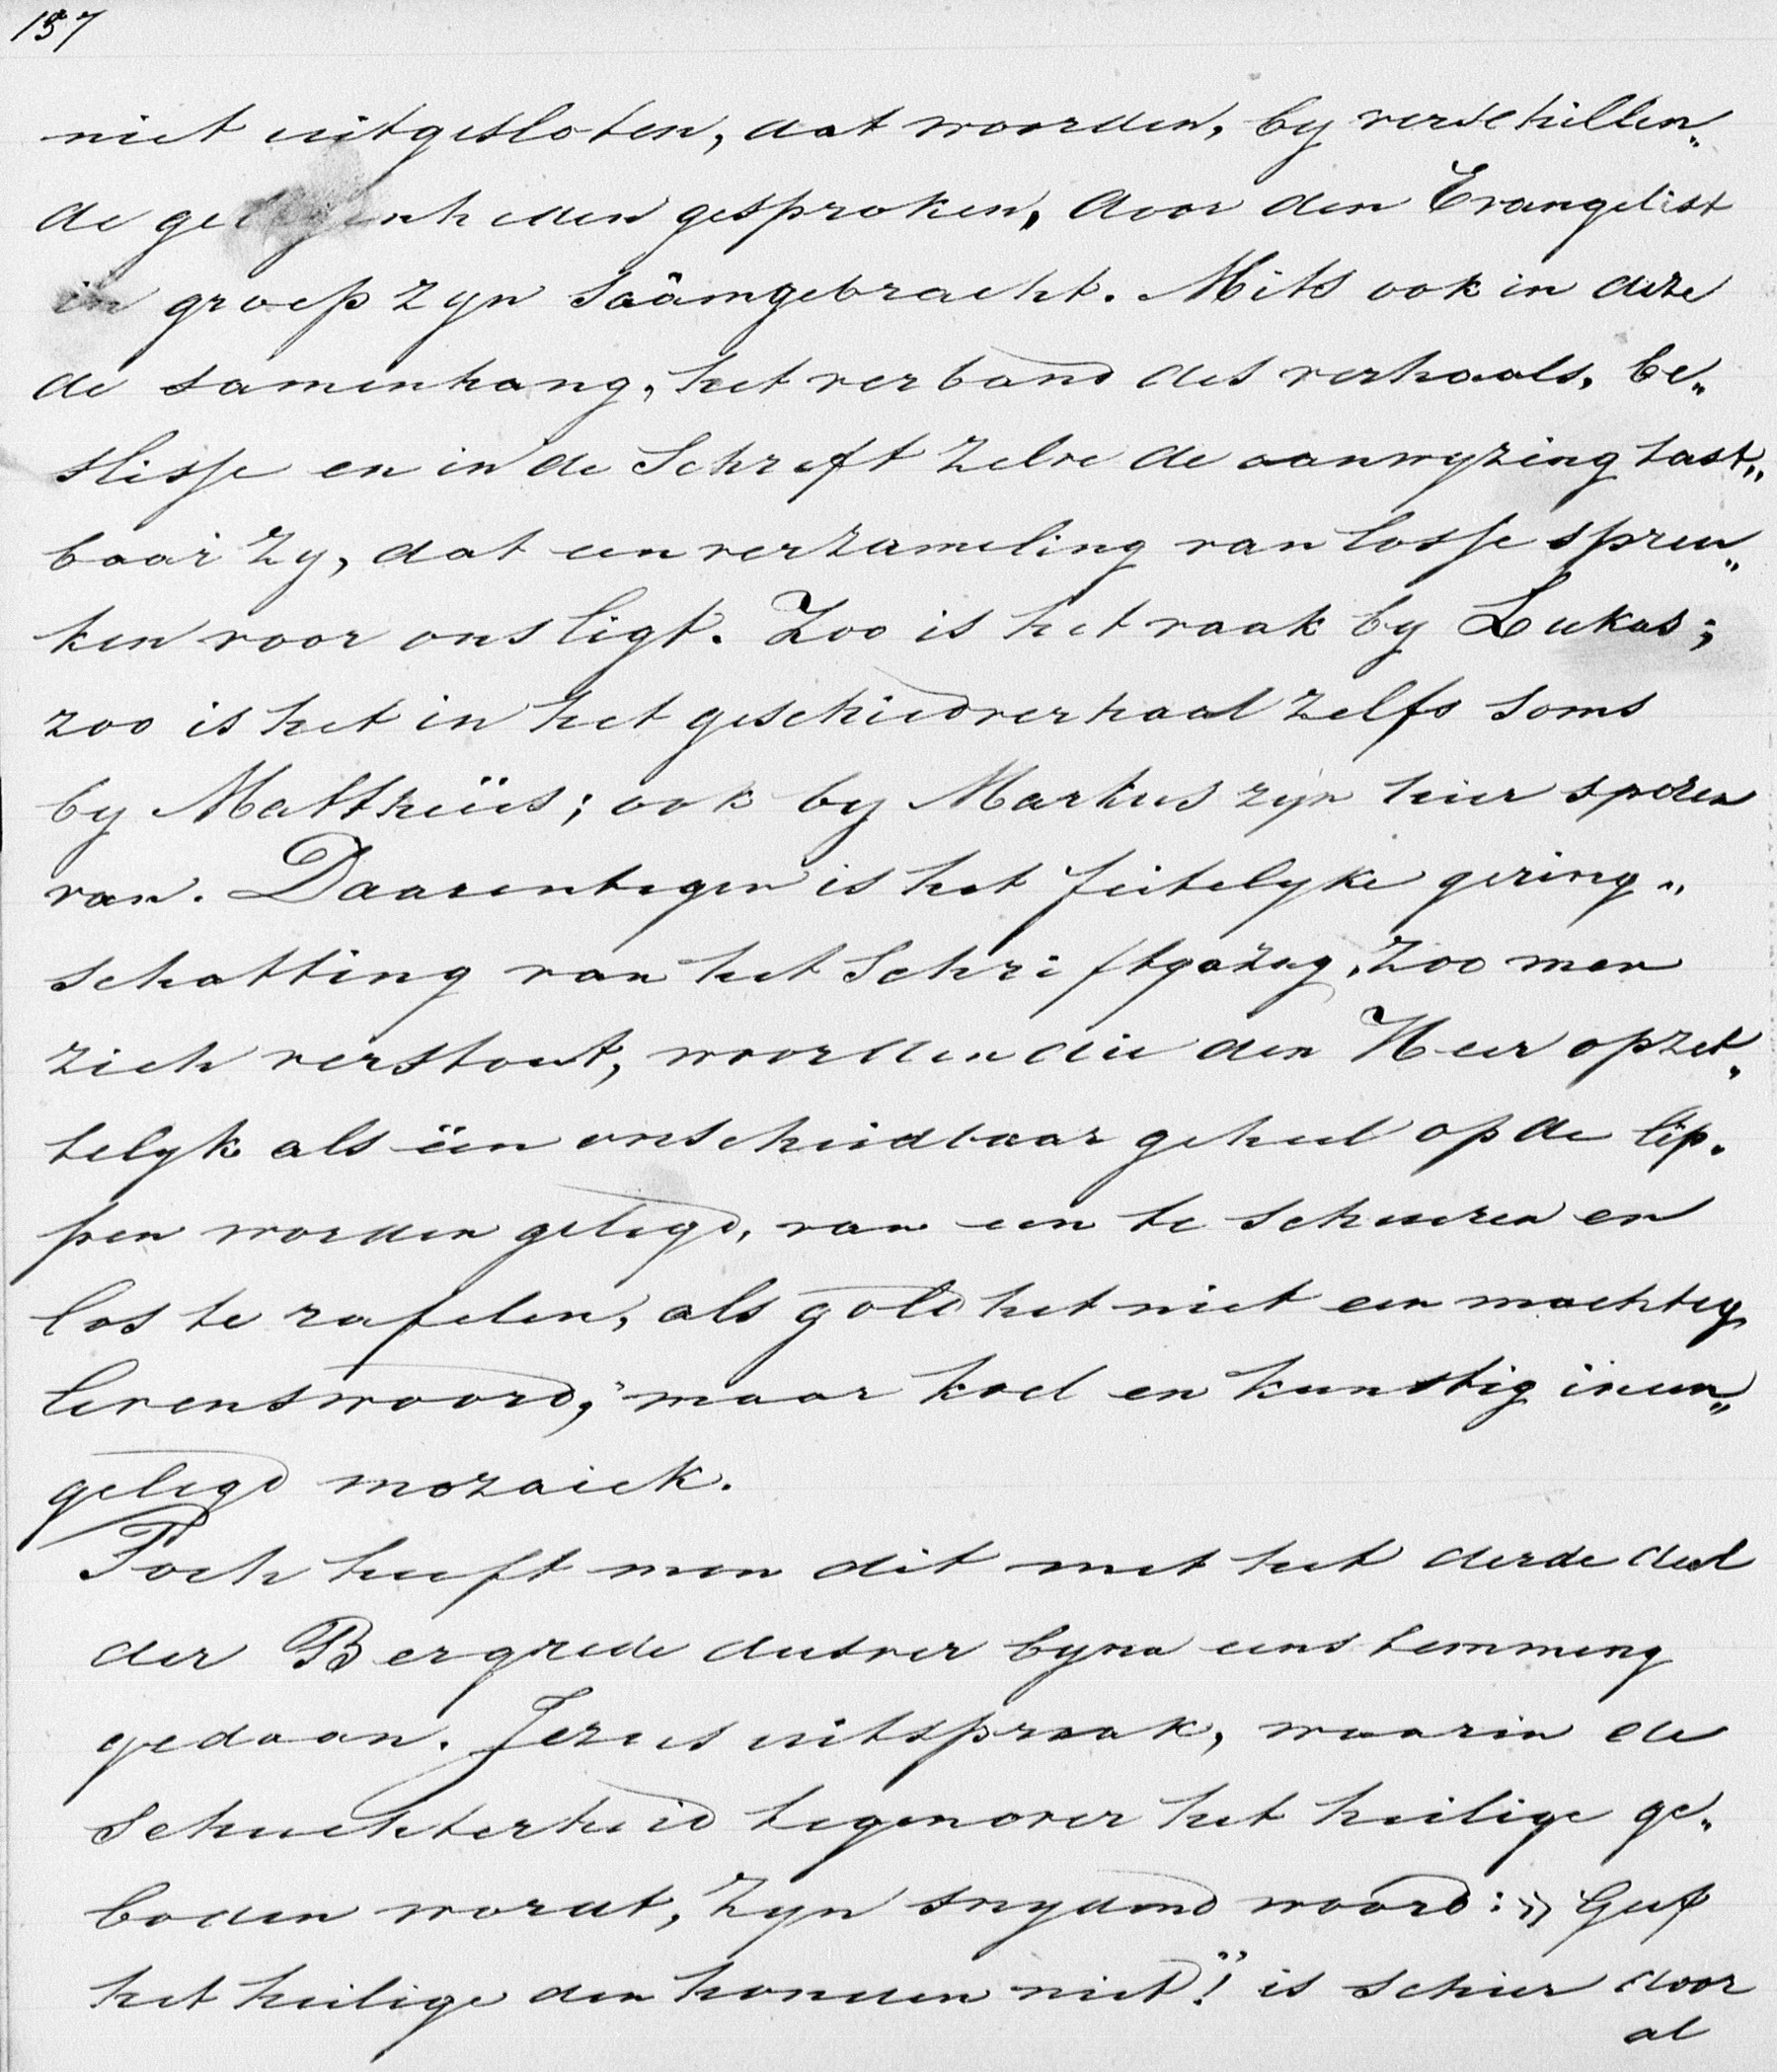 157
niet uitgesloten, dat woorden, by verschillen„
de gelegenheden gesproken, door den Evangelist
in groep zyn saâmgebracht. Mits ook in deze
de samenhang, het verband des verhaals, be„
slisse en in de Schrift zelve de aanwyzing tast„
baar zy, dat een verzameling van losse spreu„
ken voor ons ligt. Zoo is het vaak by Lukas;
zoo is het in het geschiedverhaal zelfs soms
by Matthëüs; ook by Markus zijn hier sporen
van. Daarentegen is het feitelyke gering„
schatting van het Schriftgezag, zoo men
zich verstout, woorden die den Heer opzet„
telyk als één onscheidbaar geheel op de lip„
pen worden gelegd, van een te scheuren en
los te rafelen, als gold het niet een machtig
levenswoord, maar koel en kunstig ineen„
gelegd mozaiek.
Toch heeft men dit met het derde deel
der Bergrede dusver byna eenstemmig
gedaan. Jezus uitspraak, waarin de
schuchterheid tegenover het heilige ge„
boden wordt, Zyn snydend woord: „Geef
het heilige den honden niet!” is schier door
al